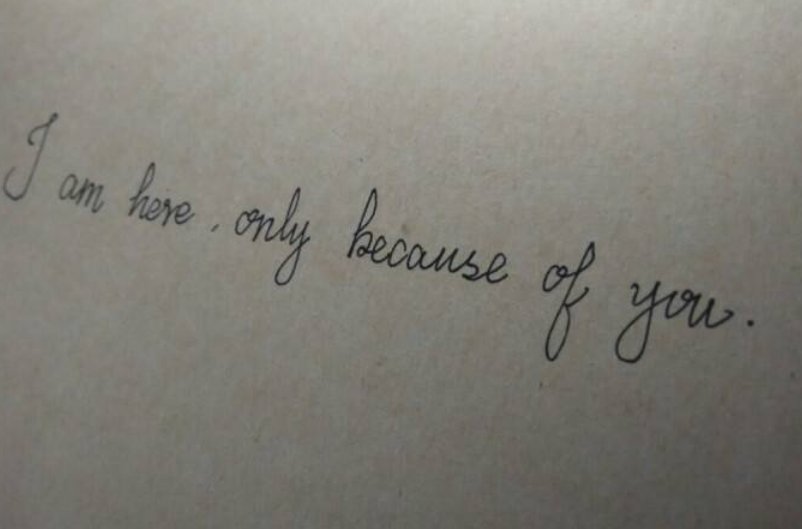 I am here, only because of you.